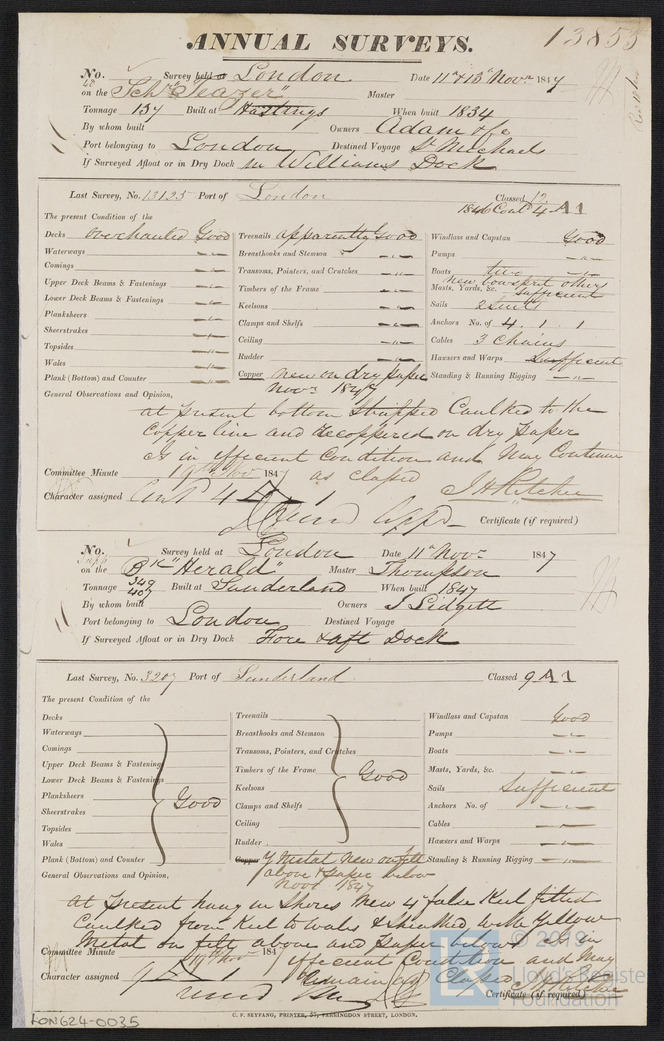 13855
ANNUAL SURVEYS.
No. 48 Survey held at London Date 11th & 13th Novr 1847
on the Schr "Teazer" Master
Tonnage 137 Built at Hastings When built 1834
By whom built Owners Adam & Co
Port belonging to London Destined Voyage St Michaels
If Surveyed Afloat or in Dry Dock in Williams Dock
Last Survey, No. 13125 Port of London Classed 12 A1
1846 Contd 4
The present Condition of the
Decks overhauled Good Treenails apparently Good Windlass and Capstan Good
Waterways Breasthooks and Stemson Pumps
Comings Transoms, Pointers, and Crutches Boats two
Upper Deck Beams & Fastenings Timbers of the Frame Masts, Yards, &c. new bowsprit others sufficient
Lower Deck Beams & Fastenings Keelsons Sails 2 suits
Planksheers Clamps and Shelfs Anchors No. of 4 . 1 . 1
Sheerstrakes Ceiling Cables 3 Chains
Topsides Rudder Hawsers and Warps Sufficient
Wales Copper new on dry paper Standing & Running Rigging
Plank (Bottom) and Counter Novr 1847
General Observations and Opinion,
at present bottom stripped Caulked to the
Copper line and recoppered on dry paper
is in efficient Condition and May Continue
Committee Minute 19th Nov 1847 as classed
Character assigned Cont 4 A 1
Certificate (if required)
No. Survey held at London Date 11th Novr 1847
on the Bk "Herald" Master Thompson
Tonnage 349 407 Built at Sunderland When built 1847
By whom built Owners J Lidgett
Port belonging to London Destined Voyage
If Surveyed Afloat or in Dry Dock Fore & aft Dock
Last Survey, No. 3207 Port of Sunderland Classed 9 A1
The present Condition of the
Decks Treenails Windlass and Capstan Good
Waterways Breasthooks and Stemson Pumps
Comings Transoms, Pointers, and Crutches Boats
Upper Deck Beams & Fastenings Timbers of the Frame Good Masts, Yards, &c.
Lower Deck Beams & Fastenings Keelsons Sails Sufficient
Planksheers Good Clamps and Shelfs Anchors No. of
Sheerstrakes Ceiling Cables
Topsides Rudder Hawsers and Warps
Wales Copper Y Metal New on felt Standing & Running Rigging
Plank (Bottom) and Counter above & paper below
General Observations and Opinion, Novr 1847
at present hung in Shores New 4 in false Keel fitted
Caulked from Keel to Wales & Sheathed with Yellow
Metal on felt above and paper below is in
Committee Minute 19th Novr 1847 efficient Condition and may
Character assigned 9 A 1 remain as Classed
Certificate (if required)
C. F. SEYFANG, PRINTER, 57, FARRINGDON STREET, LONDON.
LON624-0035
© 2019
Lloyd's Register
Foundation